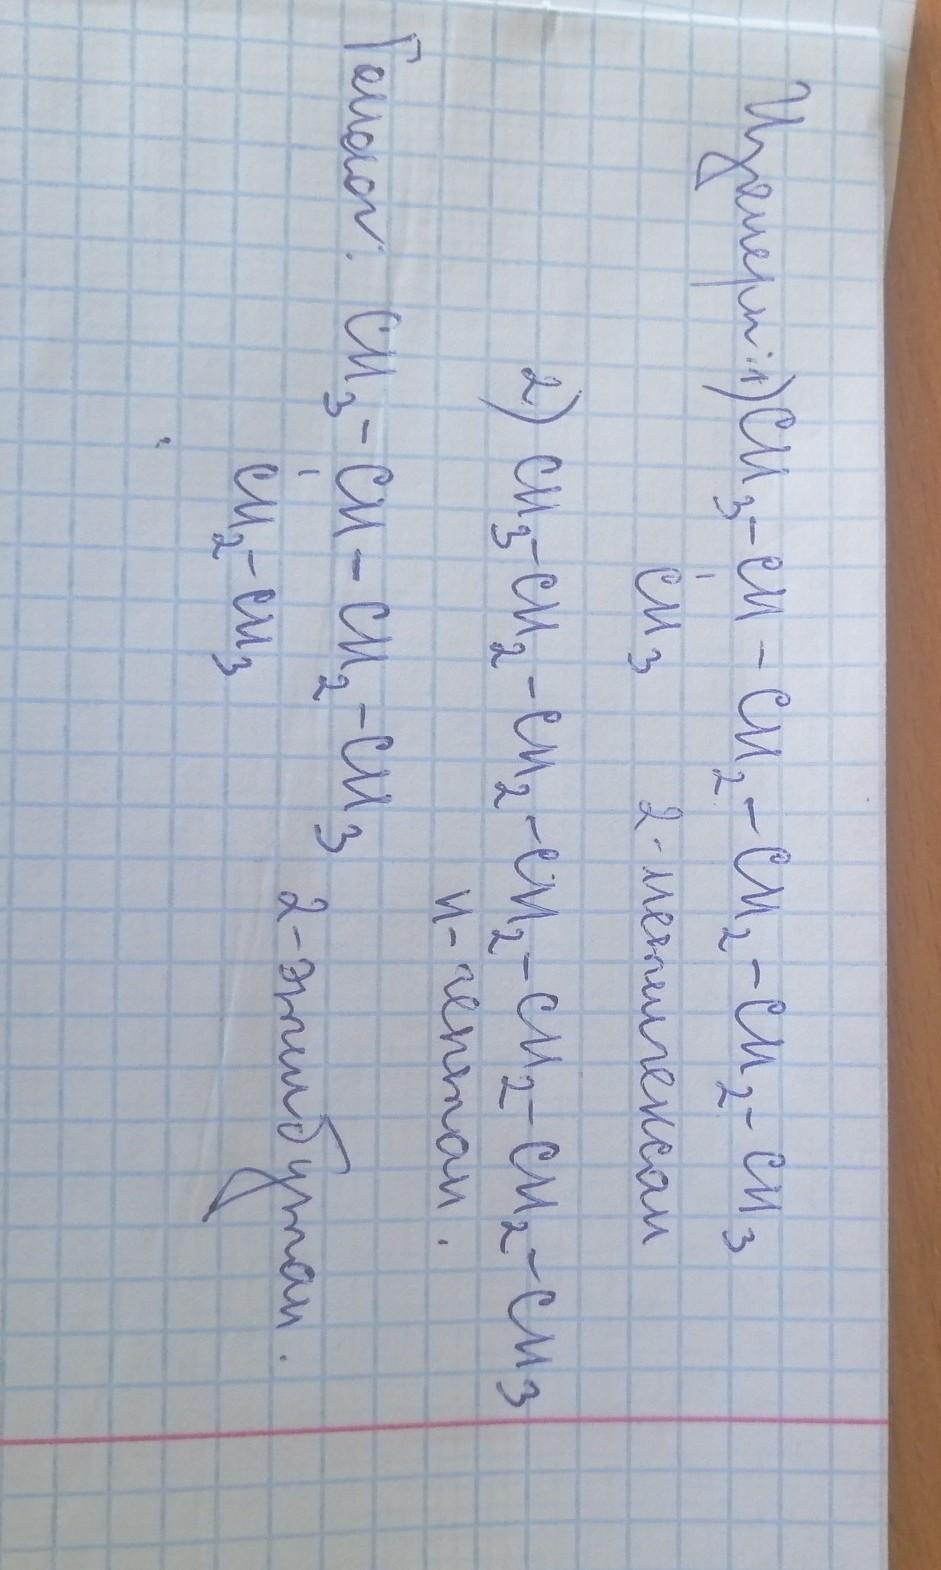 Изомери: 1) CH3-CH-CH2-CH2-CH2-CH3
CH3 2-метилгексан
2) CH3-CH2-CH2-CH2-CH2-CH2-CH3
н-гептан.
Гомолог: CH3-CH-CH2-CH3
CH2-CH3 2-этилбутан.